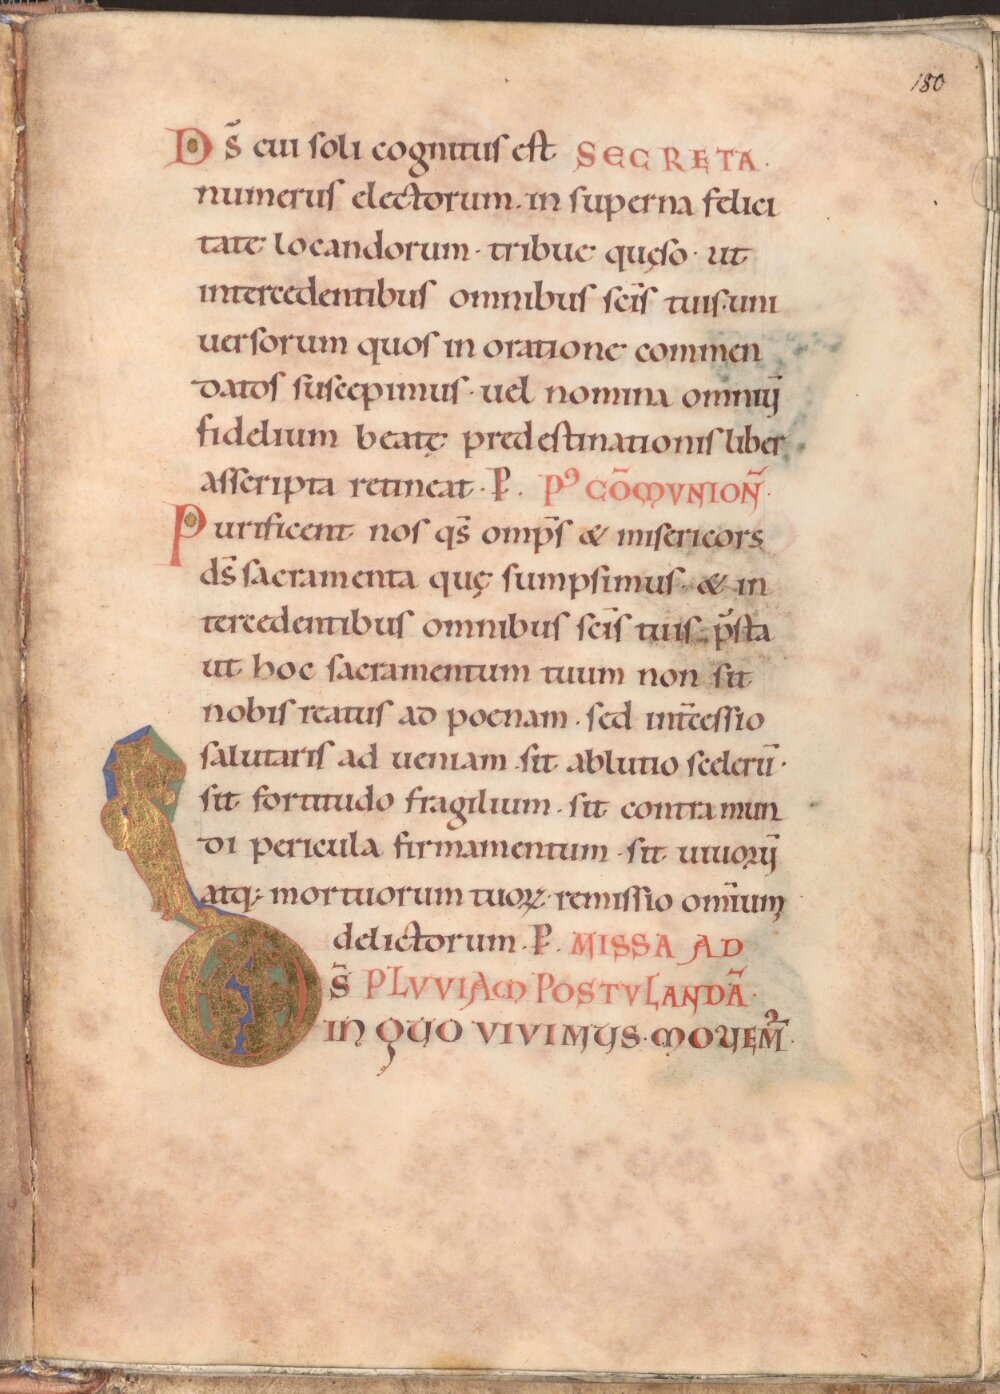 180
Ds̄ cui soli cognitus est SECRETA·
numerus electorum· in superna felici
tate locandorum· tribue quęso· ut
intercedentibus omnibus scīs tuis· uni
uersorum quos in oratione commen
datos suscepimus· uel nomina omniū
fidelium beatę predestinationis liber
asscripta retineat· P̄. Pꝰ CŌMVNION̄·
Purificent nos qs̄ omp̄s & misericors
ds̄ sacramenta quę sumpsimus· & in
tercedentibus omnibus scīs tuis· p̄sta
ut hoc sacramentum tuum non sit
nobis reatus ad poenam· sed intc̄essio
salutaris ad ueniam· sit ablutio scelerū·
sit fortitudo fragilium· sit contra mun
di pericula firmamentum· sit uiuorū
atq; mortuorum tuoꝝ· remissio om̄ium
delictorum· P̄. MISSA AD
DS̄ PLVVIAM POSTVLANDĀ·
IN QUO VIVIMUS· MOUEM᷑·